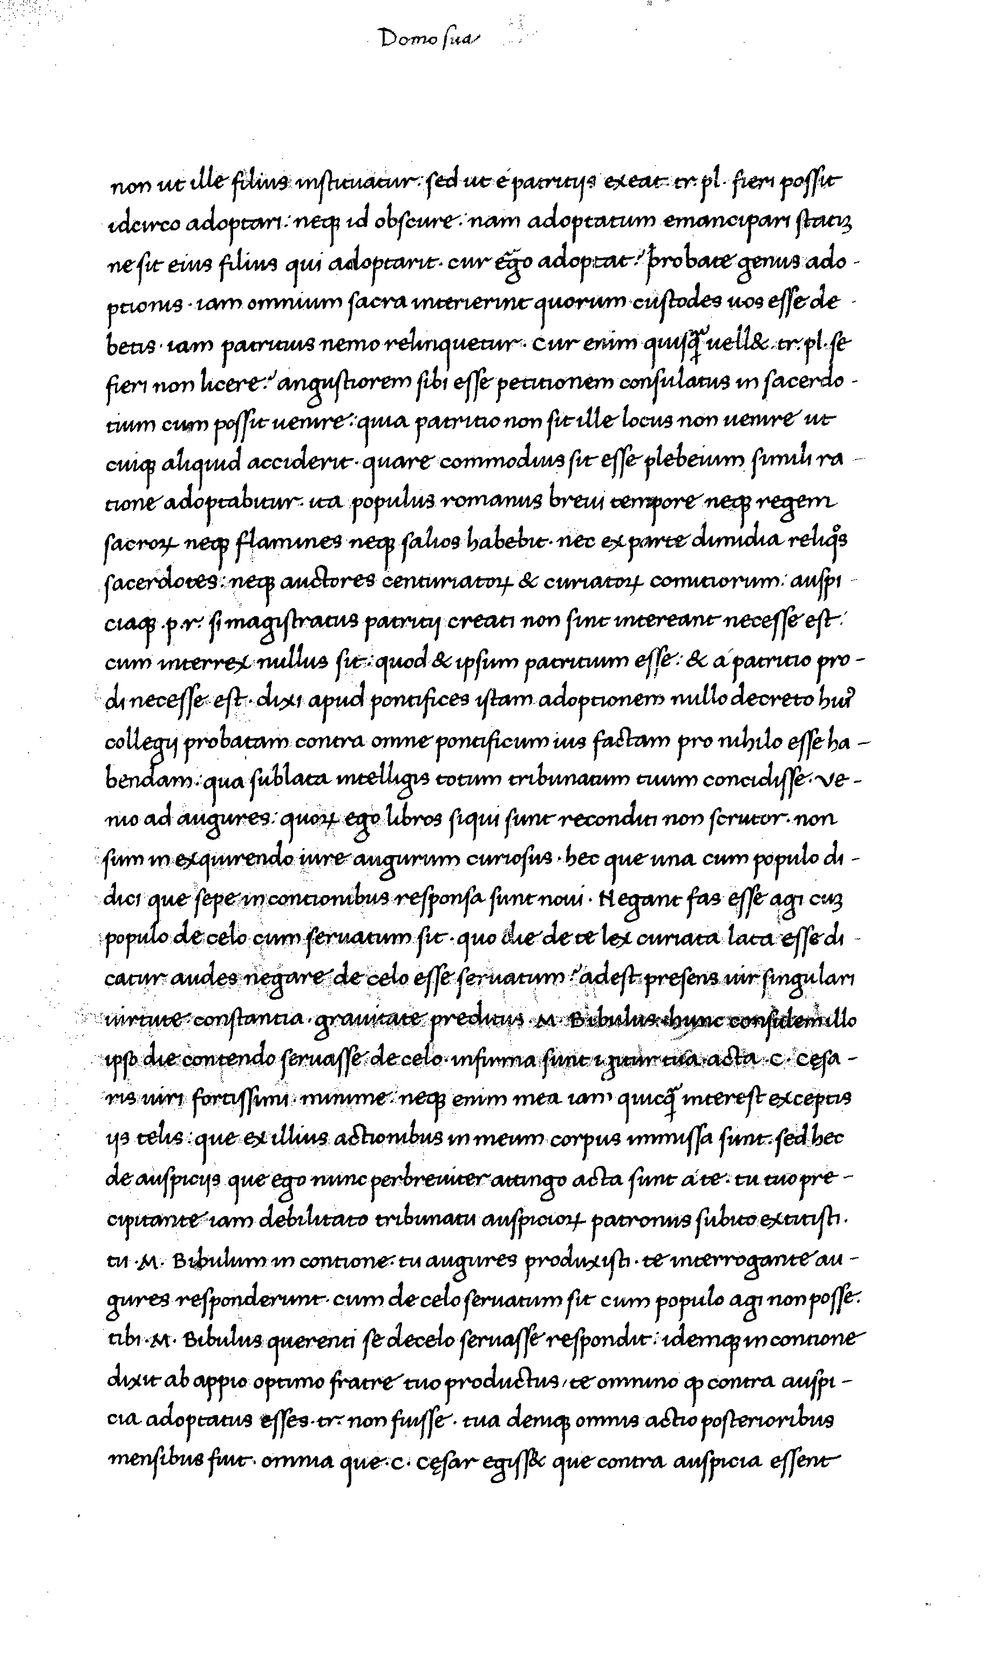 Domo sua
non ut ille filius instituatur: sed ut e patritijs exeat: tr. pl. fieri possit
idcirco adoptari: neqꝫ id obscure: nam adoptatum emancipari statiꝫ
ne sit eius filius qui adoptarit. cur eg̃o adoptat? Probate genus ado-
ptionis. iam omnium sacra interierint quorum custodes uos esse de
betis. iam patritius nemo relinquetur. Cur enim quisq̃ uell& tr. pl. se
fieri non licere? angustiorem sibi esse petitionem consulatus in sacerdo-
tium cum possit uenire: quia patritio non sit ille locus non uenire ut
cuiqꝫ aliquid acciderit. quare commodius sit esse plebeium simili ra-
tione adoptabitur. ita populus romanus breui tempore neqꝫ regem
sacroꝝ neqꝫ flamines neqꝫ salios habebit. nec ex parte dimidia reliqͦs
sacerdotes: neqꝫ auctores centuriatoꝝ & curiatoꝝ comitiorum: auspi
ciaqꝫ .p.r. si magistratus patritij creati non sint intereant necesse est:
cum interrex nullus sit: quod & ipsum patritium esse: & a patritio pro-
di necesse est. dixi apud pontifices istam adoptionem nullo decreto huiꝰ
collegij probatam contra omne pontificum ius factam pro nihilo esse ha-
bendam: qua sublata intelligis totum tribunatum tuum concidisse. Ve-
nio ad augures: quoꝝ ego libros siqui sunt reconditi non scrutor. non
sum in exquirendo iure augurum curiosus. hec que una cum populo di-
dici que sepe in contionibus responsa sunt noui. Negant fas esse agi cuꝫ
populo de celo cum seruatum sit. quo die de te lex curiata lata esse di-
catur audes negare de celo esse seruatum? adest presens uir singulari
uirtute constantia. grauitate preditus. M. Bibulus. hunc consulem illo
ipso die contendo seruasse de celo. infirma sunt igitur tua acta .C. Cęsa-
ris uiri fortissimi. minime: neqꝫ enim mea iam quicq̃ interest exceptis
ijs telis: que ex illius actionibus in meum corpus immissa sunt. sed hec
de auspicijs que ego nunc perbreuiter attingo acta sunt a te. tu tuo pre-
cipitante iam debilitato tribunatu auspicioꝝ patronus subito extitisti.
tu .M. Bibulum in contione: tu augures produxisti. te interrogante au-
gures responderunt. cum de celo seruatum sit cum populo agi non posse.
tibi .M. Bibulus querenti se decelo seruasse respondit: idemqꝫ in contione
dixit ab appio optimo fratre tuo productus, te omnino ꝙ contra auspi-
cia adoptatus esses .tr. non fuisse. tua deniqꝫ omnis actio posterioribus
mensibus fuit. omnia que .C. Cęsar egiss& que contra auspicia essent